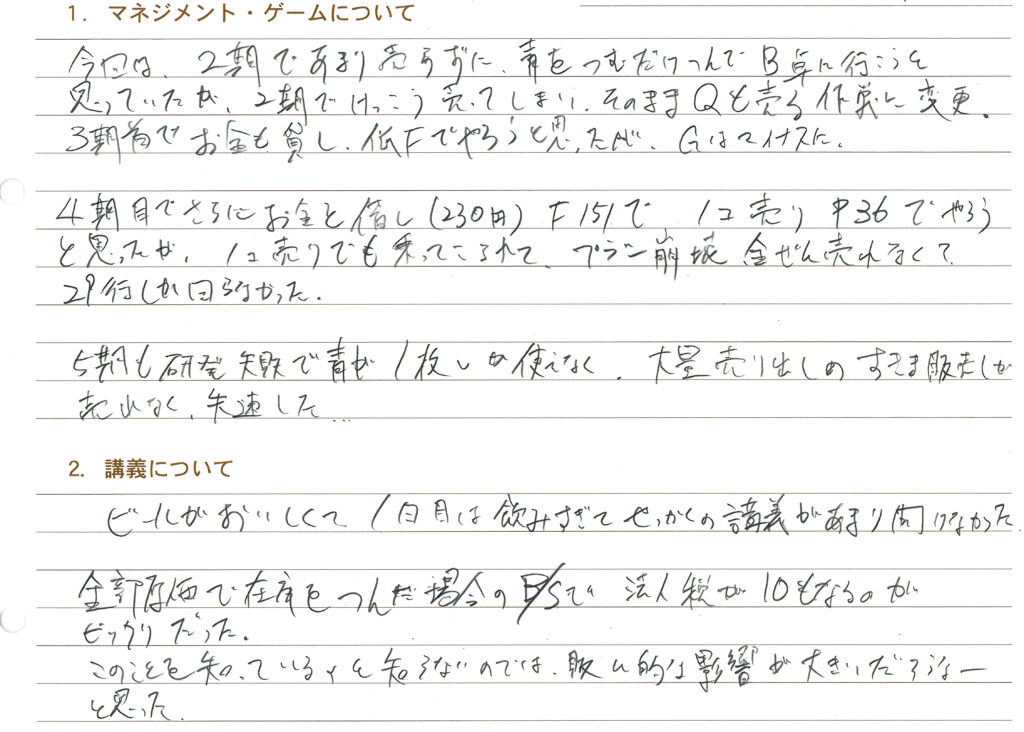 1. マネジメント・ゲームについて
今回は、2期であまり売らずに、青をつむだけつんでB卓に行こうと
思っていたが、2期でけっこう売ってしまい、そのままQも売る作戦に変更。
3期首でお金も貸し、低Fでやろうと思ったが、Gはマイナスに。
4期目でさらにお金を借し(230円) F151で 1コ売り 中36でやろう
と思ったが、1コ売りでも乗ってこられて、プラン崩壊 全ぜん売れなくて
29行しか回らなかった。
5期も研発失敗で青が1枚しか使えなく、大量売り出しのすきま販売しか
売れなく、失速した…
2. 講義について
ビールがおいしくて1日目は飲みすぎてせっかくの講義があまり聞けなかった
全部原価で在庫をつんだ場合のB/Sで 法人税が10もなるのが
ビックリだった。
このことを知っているのと知らないのでは、的な影響が大きいだろうなー
と思った。